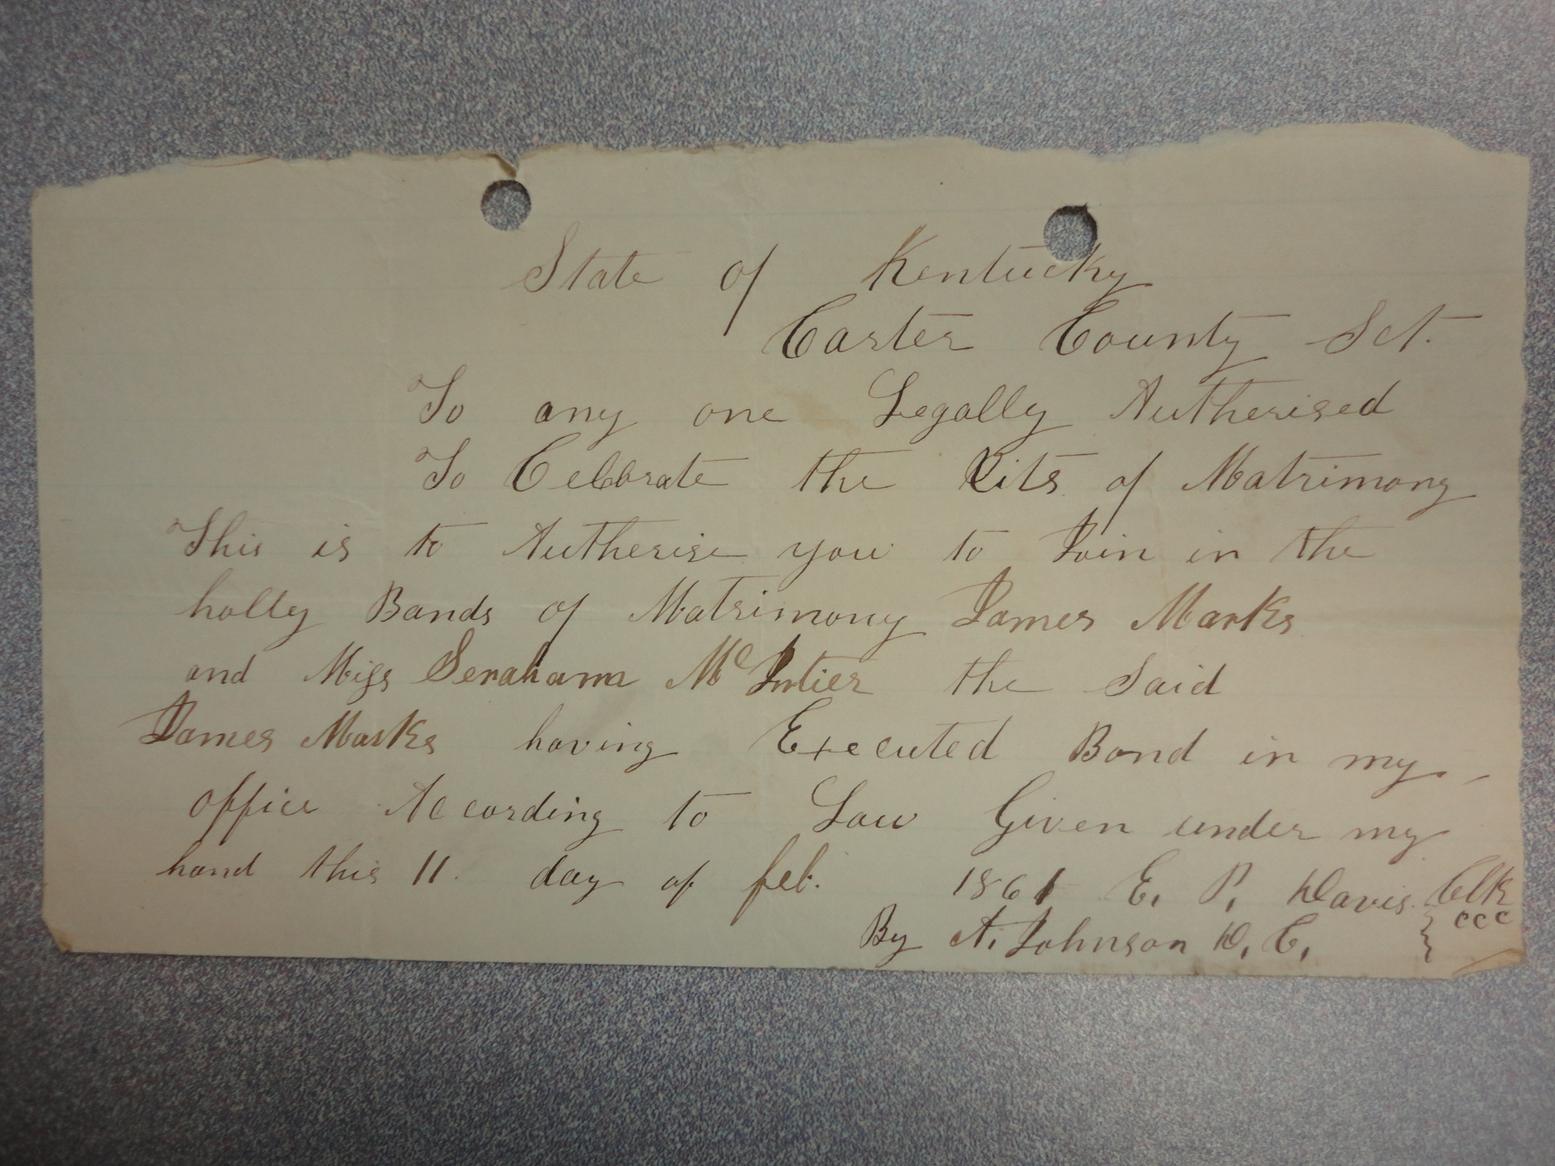 State of Kentucky
Carter County Sct.
To any one Legally Autherised
To Celebrate the Rits of Matrimony
This is toAutherise you to Join in the
holly Bands of Matrimony James Marks
and Miss Seraham McIntier the Said
James Marks having Executed Bond in my
office According to Law Given under my
hand this 11. day of feb. 1861 E. P. Davis Clk
By A. Johnson D. C. } CCC